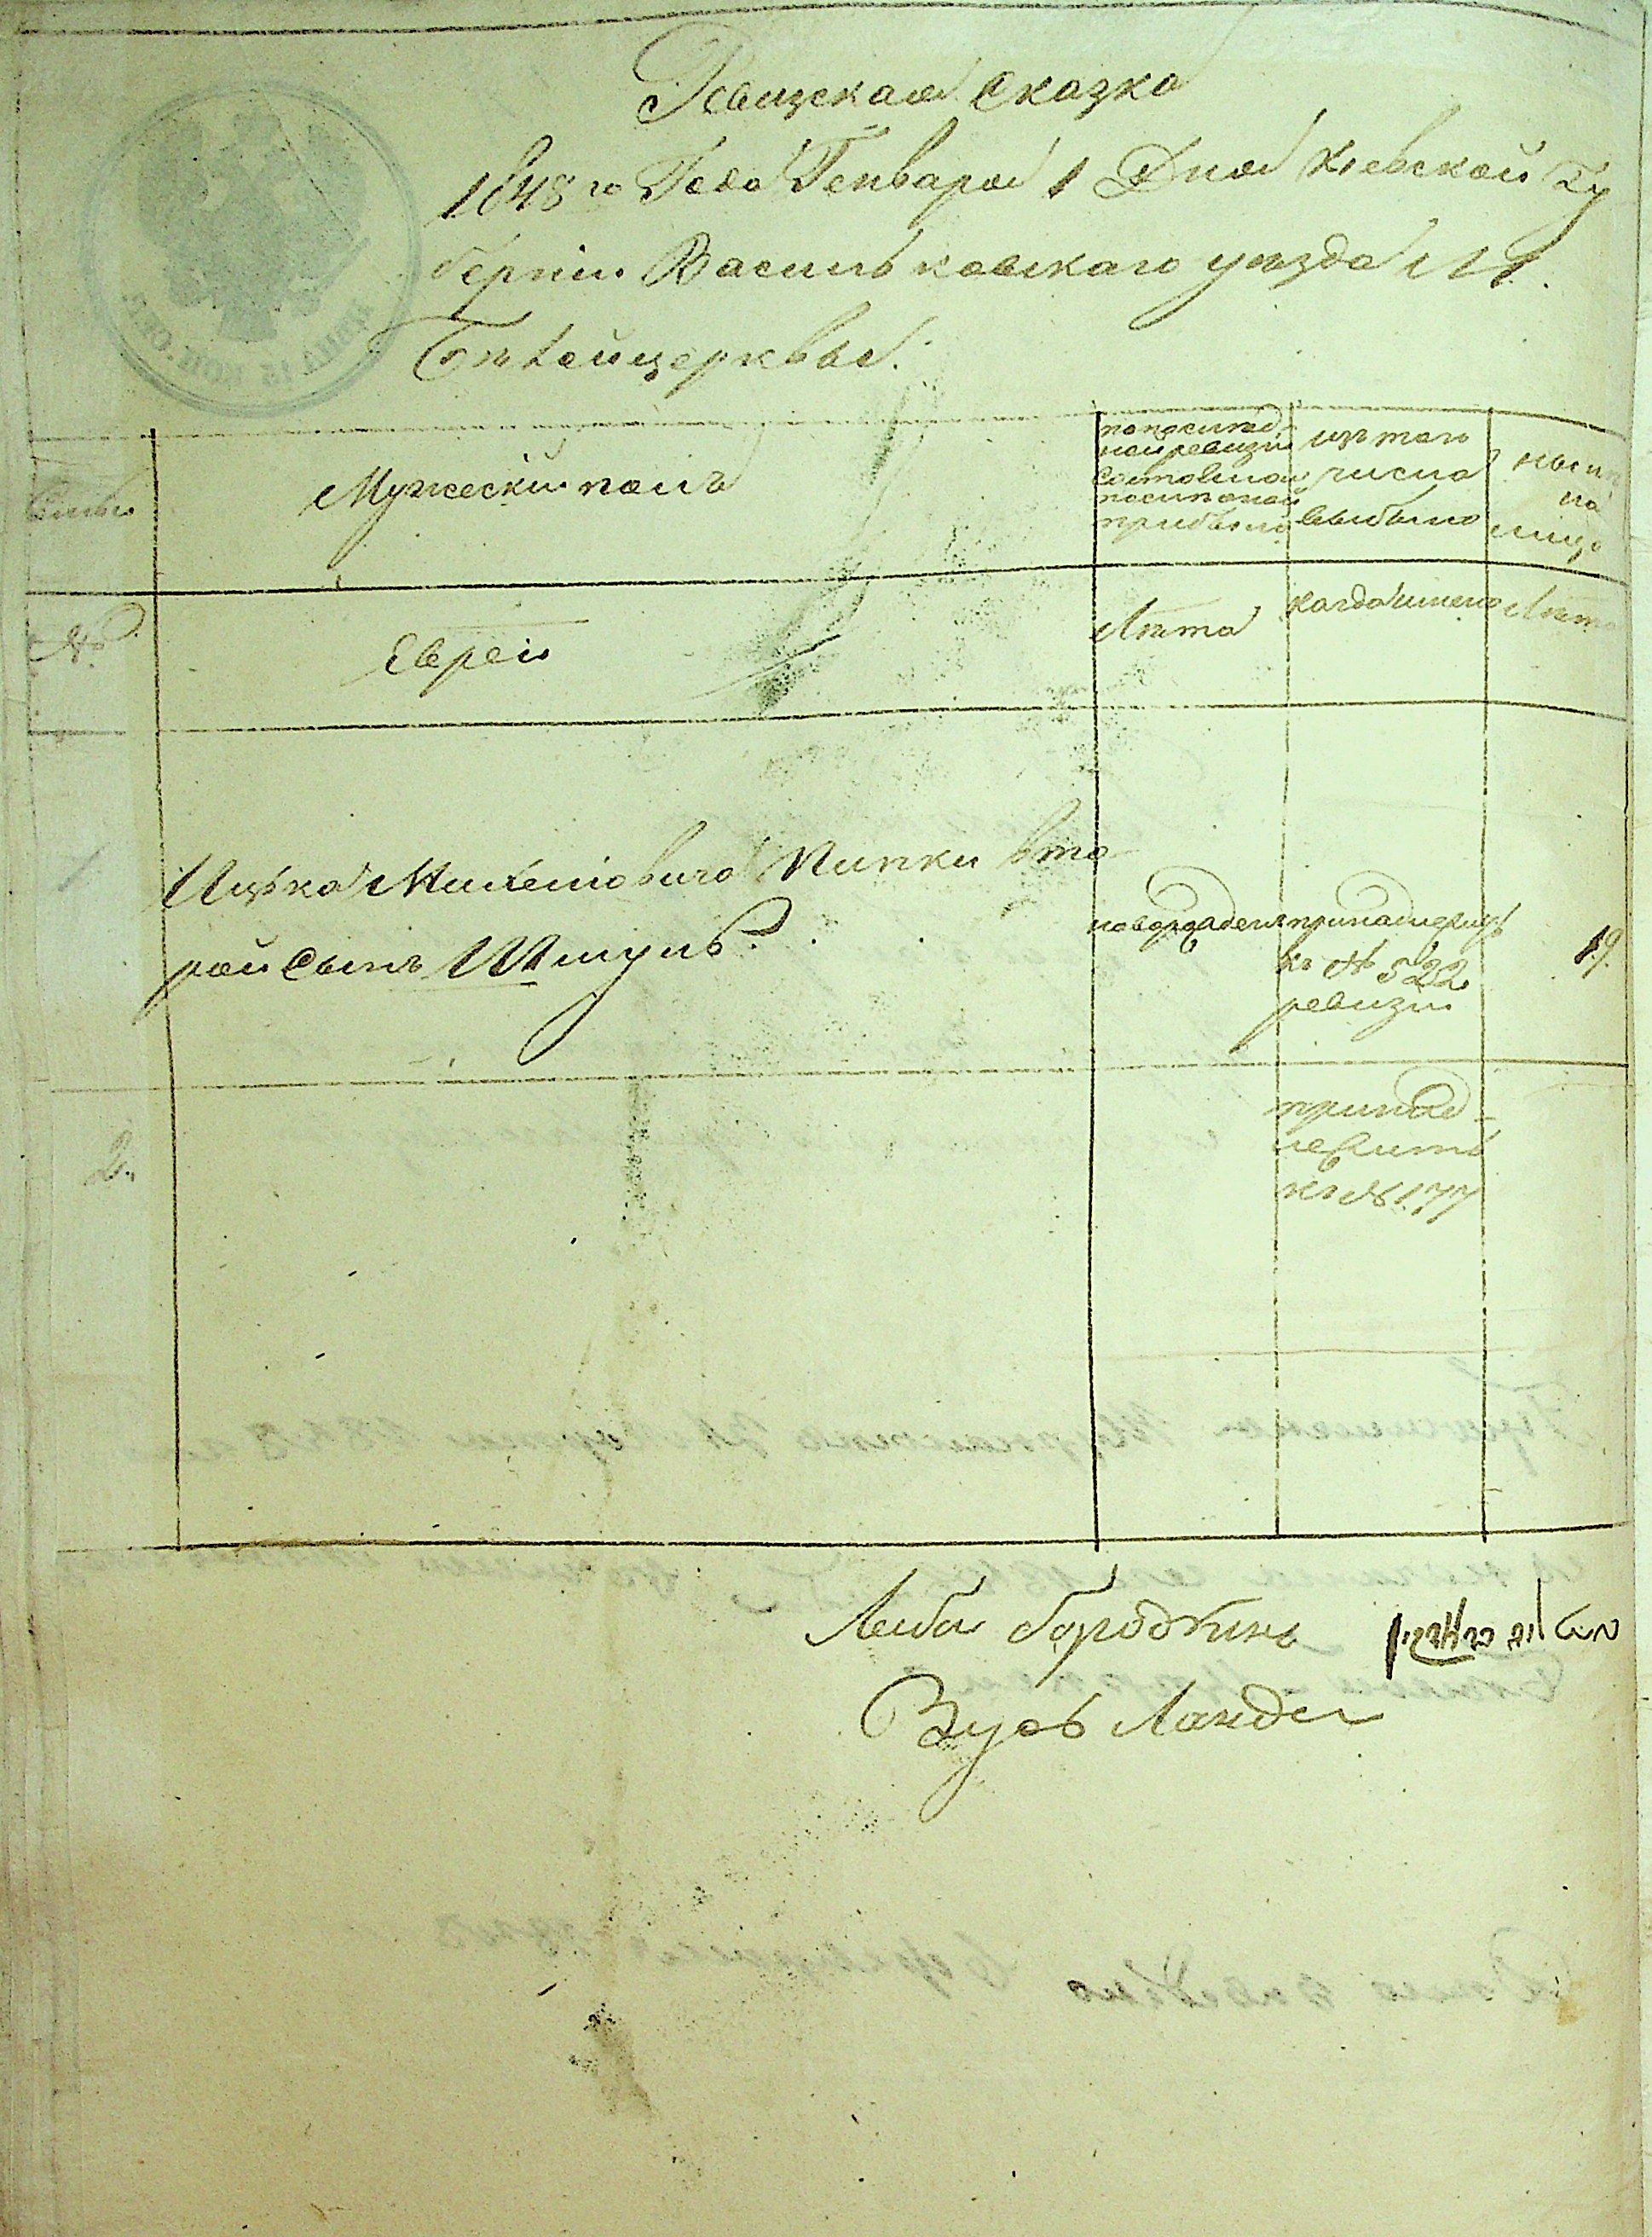 Ревизская Сказка
1848го Года Генваря 1 Дня Киевской Гу
берніи Васильковскаго уезда М.
Белойцерквы.
Мужескій полъ
по послед
ней ревизіи
состояло и
после оной
прибыло
изъ того
числа
выбыло
ныне
на
лицо
№
Евреи
Лета
когда именно
Лета
1
Ицька Михелиовича Липки вто
рой Сынъ Шмуль
новорожден
принадлежитъ
къ № 522
ревизіи
19.
2.
принад-
лежитъ
къ № 177
Лейба бородкинъ
Зусь Ланде